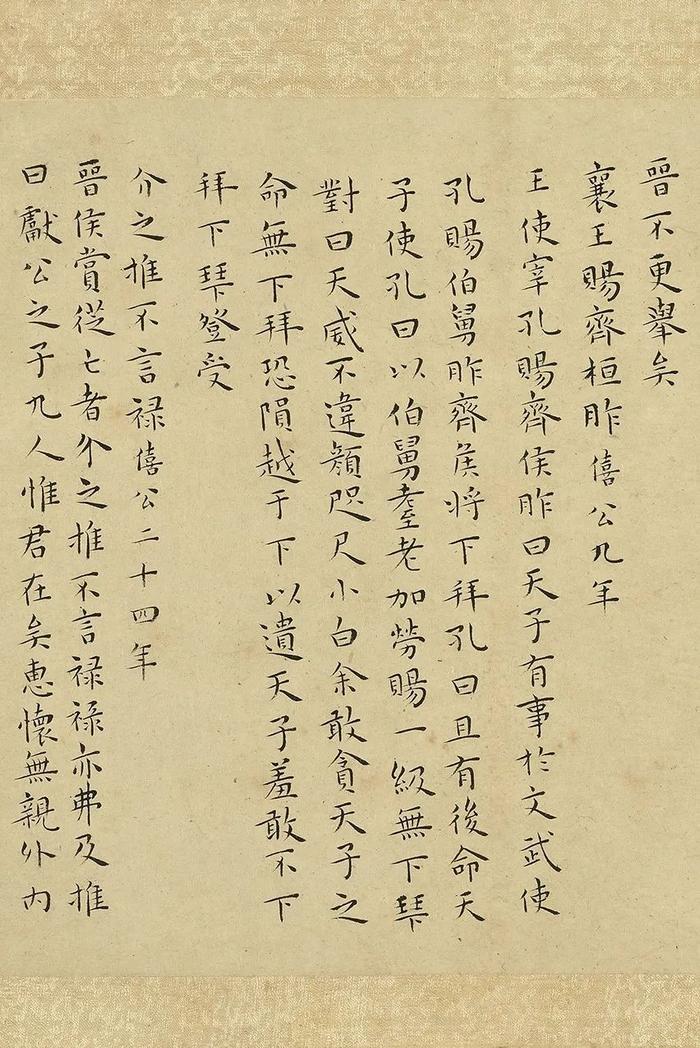 晉不更舉矣
襄王賜齊桓胙僖公九年
王使宰孔賜齊侯胙曰天子有事於文武使
孔賜伯舅胙齊侯將下拜孔曰且有後命天
子使孔曰以伯舅耋老加勞賜一級無下拜
對曰天威不違顏咫尺小白余敢貪天子之
命無下拜恐隕越于下以遺天子羞敢不下
拜下拜登受
介之推不言禄僖公二十四年
晉侯賞從亡者介之推不言禄禄亦弗及推
曰獻公之子九人惟君在矣惠懷無親外內